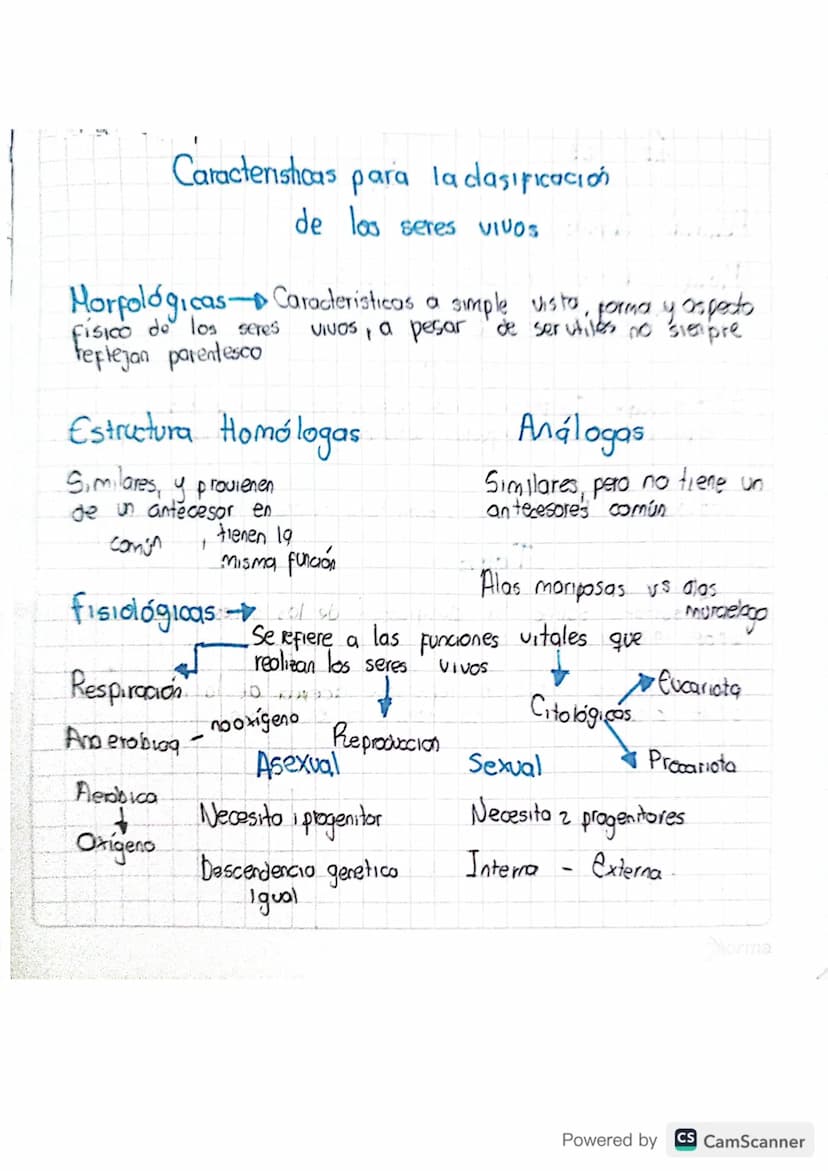 Características para la clasificación
de los seres vivos
Morfológicas → Características a simple vista, forma y aspecto
físico de los seres vivos, a pesar de ser utiles no siempre
reflejan parentesco
Estructura Homólogas
Similares, y provienen
de un antecesor en
común, tienen la
misma función
Análogas
Similares, pero no tiene un
antecesores común
Alas mariposas vs alas
murcielago
Fisiológicas →
Se refiere a las funciones vitales que
realizan los seres vivos
Respiración
Anaerobica - no oxígeno
Aeróbica
↓
Oxígeno
Reproduccion
Asexual
Necesita 1 progenitor
Descendencia genetica
Igual
Sexual
Necesita 2 progenitores
Interna - Externa
Citológicas
Eucariota
Procariota
Norma
Powered by CS CamScanner